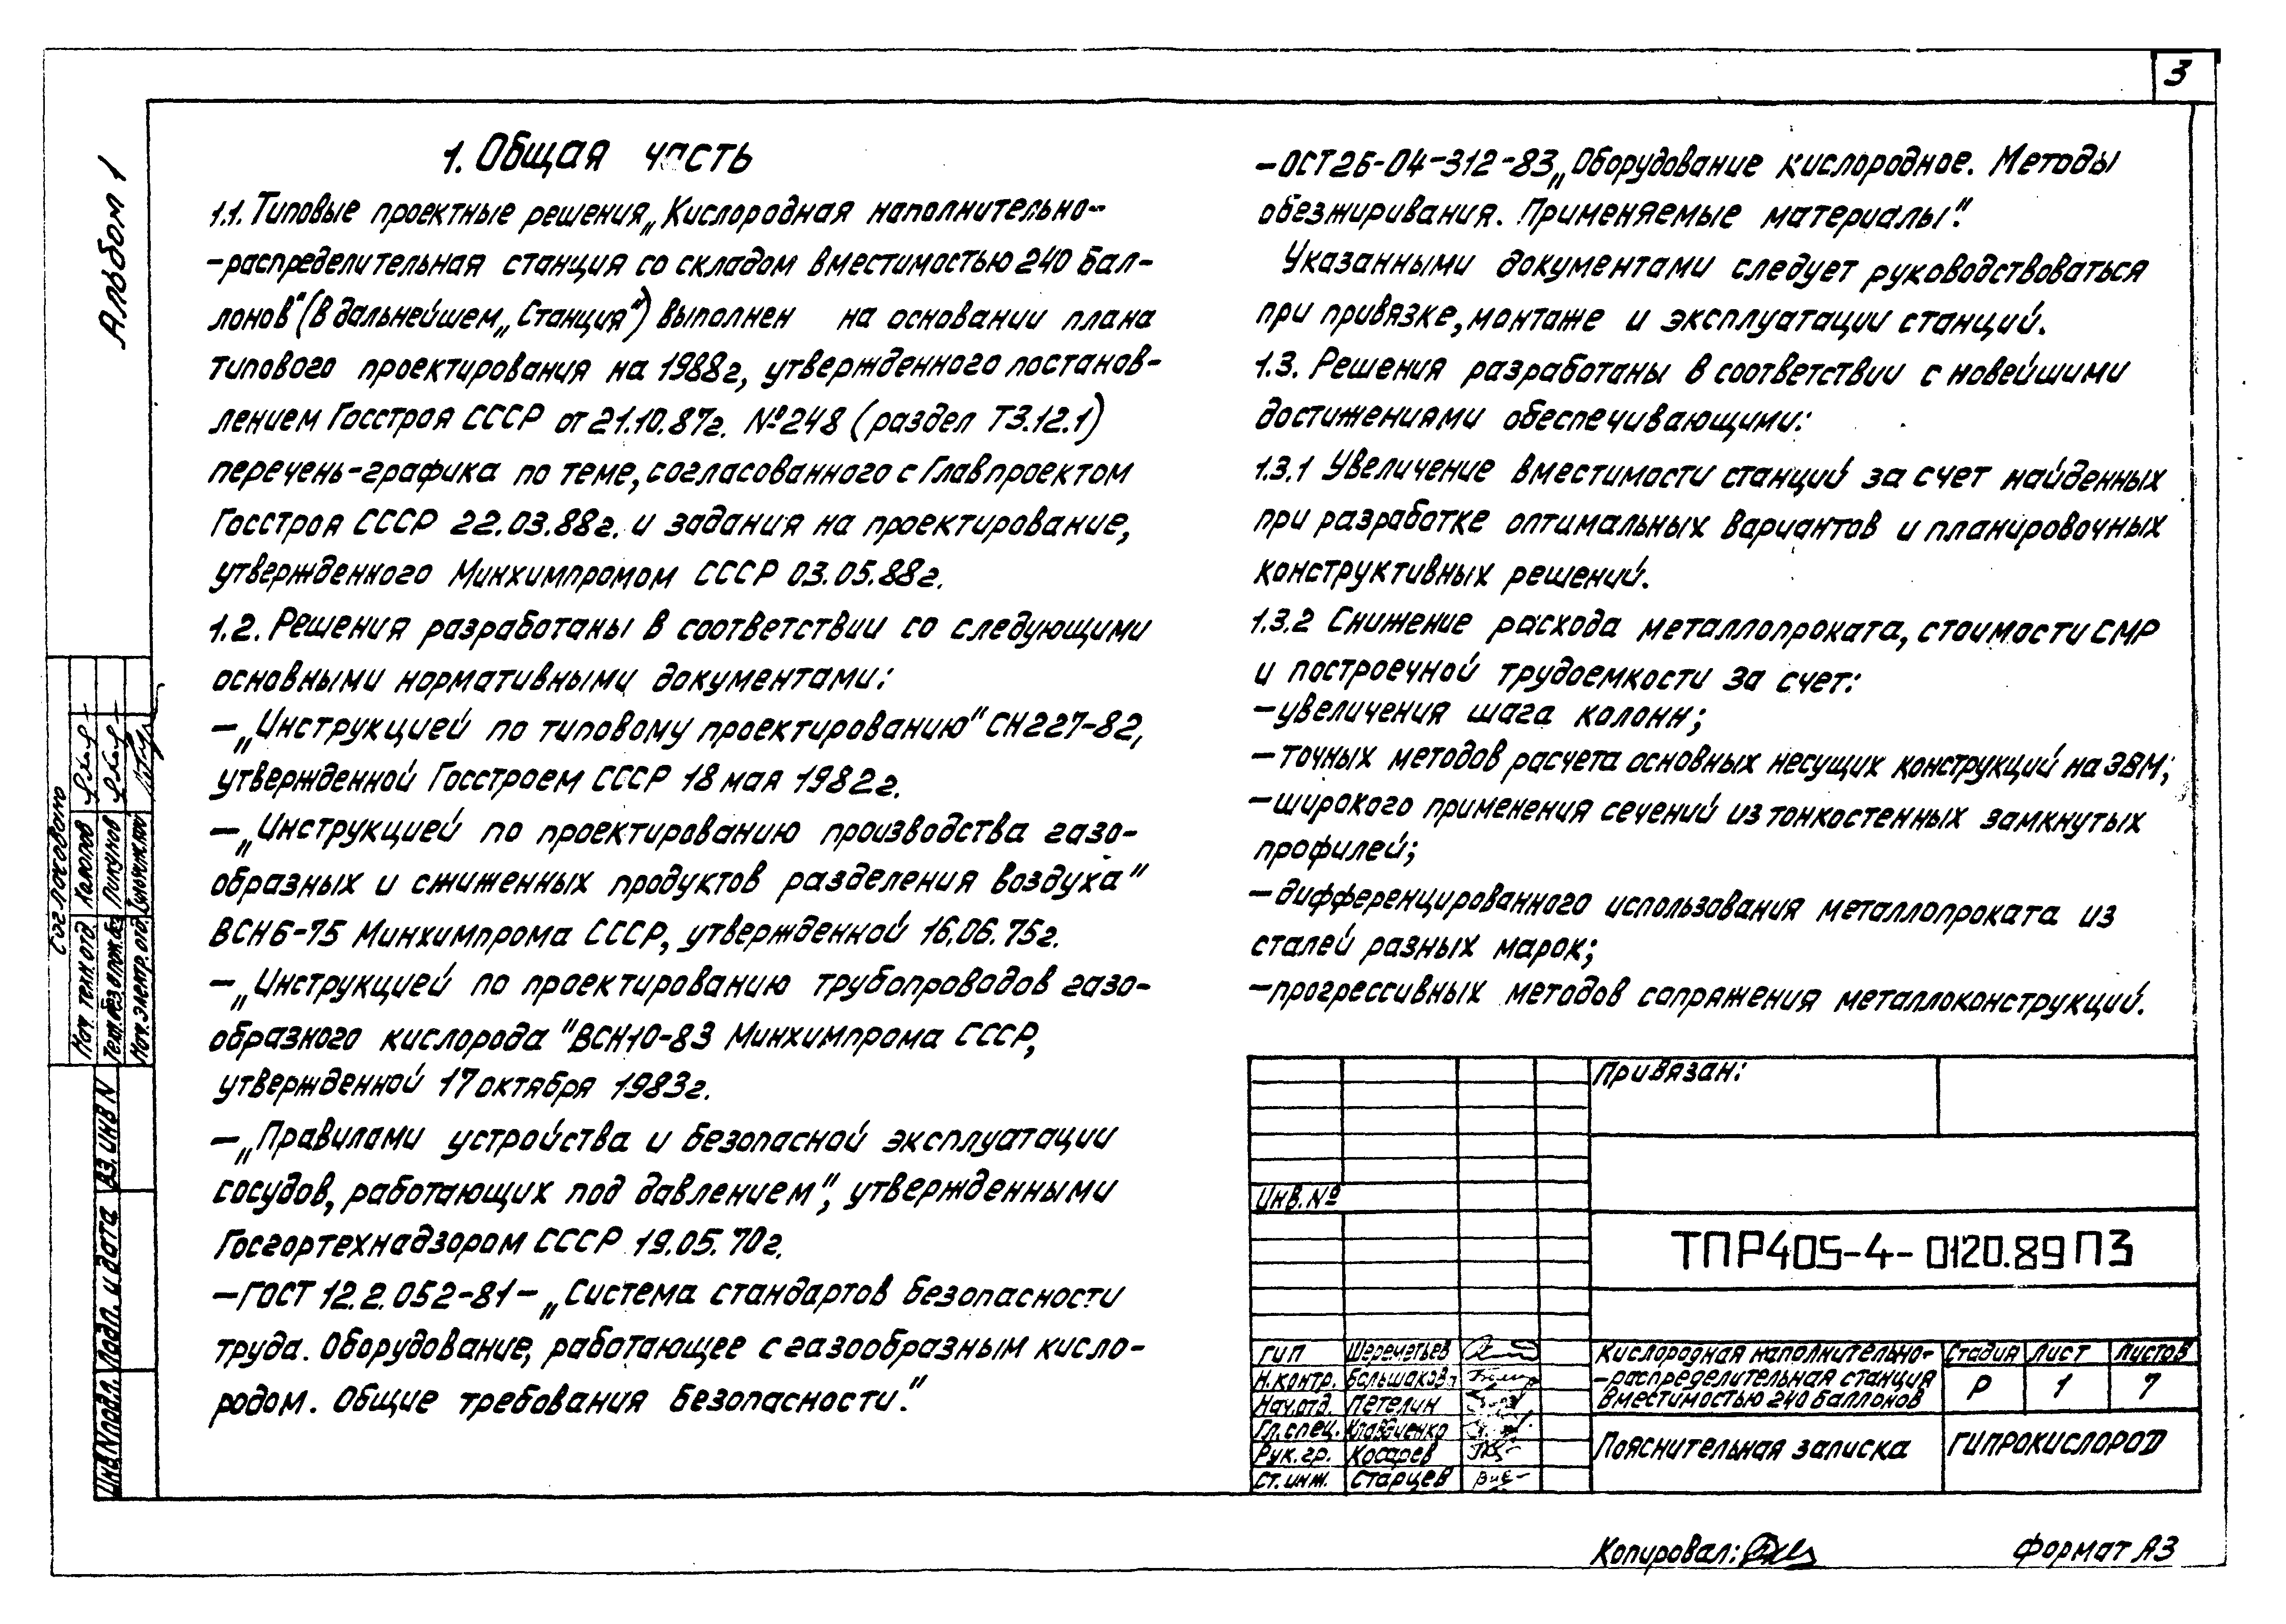 3
Альбом 1
1. Общая часть
1.1. Типовые проектные решения „Кислородная наполнительно-
-распределительная станция со складом вместимостью 240 бал-
лонов" (в дальнейшем „Станция") выполнен на основании плана
типового проектирования на 1988г, утвержденного постанов-
лением Госстроя СССР от 21.10.87г. №248 (раздел Т3.12.1)
перечень-графика по теме, согласованного с Главпроектом
Госстроя СССР 22.03.88г. и задания на проектирование,
утвержденного Минхимпромом СССР 03.05.88г.
1.2. Решения разработаны в соответствии со следующими
основными нормативными документами:
— „Инструкцией по типовому проектированию" СН227-82,
утвержденной Госстроем СССР 18 мая 1982г.
— „Инструкцией по проектированию производства газо-
образных и сжиженных продуктов разделения воздуха"
ВСН6-75 Минхимпрома СССР, утвержденной 16.06.75г.
— „Инструкцией по проектированию трубопроводов газо-
образного кислорода "ВСН10-83 Минхимпрома СССР,
утвержденной 17 октября 1983г.
— „Правилами устройства и безопасной эксплуатации
сосудов, работающих под давлением", утвержденными
Госгортехнадзором СССР 19.05.70г.
—ГОСТ 12.2.052-81— „Система стандартов безопасности
труда. Оборудование, работающее с газообразным кисло-
родом. Общие требования безопасности."
—ОСТ26-04-312-83 „Оборудование кислородное. Методы
обезжиривания. Применяемые материалы".
Указанными документами следует руководствоваться
при привязке, монтаже и эксплуатации станций.
1.3. Решения разработаны в соответствии с новейшими
достижениями обеспечивающими:
1.3.1 Увеличение вместимости станций за счет найденных
при разработке оптимальных вариантов и планировочных
конструктивных решений.
1.3.2 Снижение расхода металлопроката, стоимости СМР
и построечной трудоемкости за счет:
—увеличения шага колонн;
—точных методов расчета основных несущих конструкций на ЭВМ;
—широкого применения сечений из тонкостенных замкнутых
профилей;
—дифференцированного использования металлопроката из
сталей разных марок;
—прогрессивных методов сопряжения металлоконструкций.
Согласовано
Нач. техн. отд.
Техн. без. и пож. без. Пикунов
Нач. электр. отд.
Вз. инв N
Подп. и дата
Инв. N подл.
Привязан:
Инв. №
ТПР405-4-0120.89 ПЗ
ГИП Шереметьев
Н. контр. Большакова
Нач. отд. Петелин
Гл. спец. Кравченко
Рук. гр. Косарев
Ст. инж. Старцев
Кислородная наполнительно-
-распределительная станция
вместимостью 240 баллонов
Стадия Лист Листов
Р 1 7
Пояснительная записка
ГИПРОКИСЛОРОД
Копировал:
Формат А3